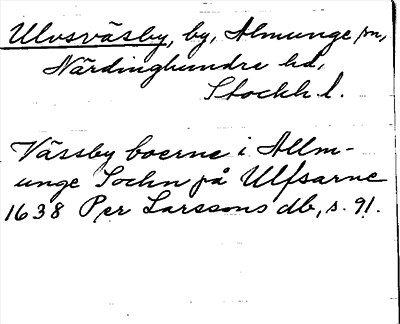 Ulvsväsby, by, Almunge sn,
Närdinghundre hd,
Stockh. l.
Vässby boerne i Allm-
unge Sochn på Ulfsarne
1638 Per Larssons db, s. 91.